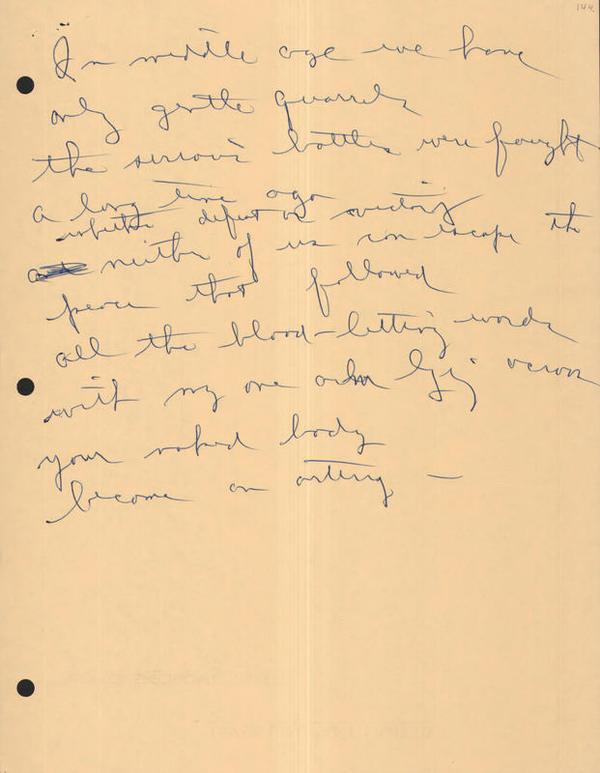 144
In middle age we have
only gentle quarrels
the serious battles were fought
a long time ago
whether defeat or victory
neither of us can escape the
peace that followed
all the blood-letting words
with my one arm lying across
your naked body
become an artery —